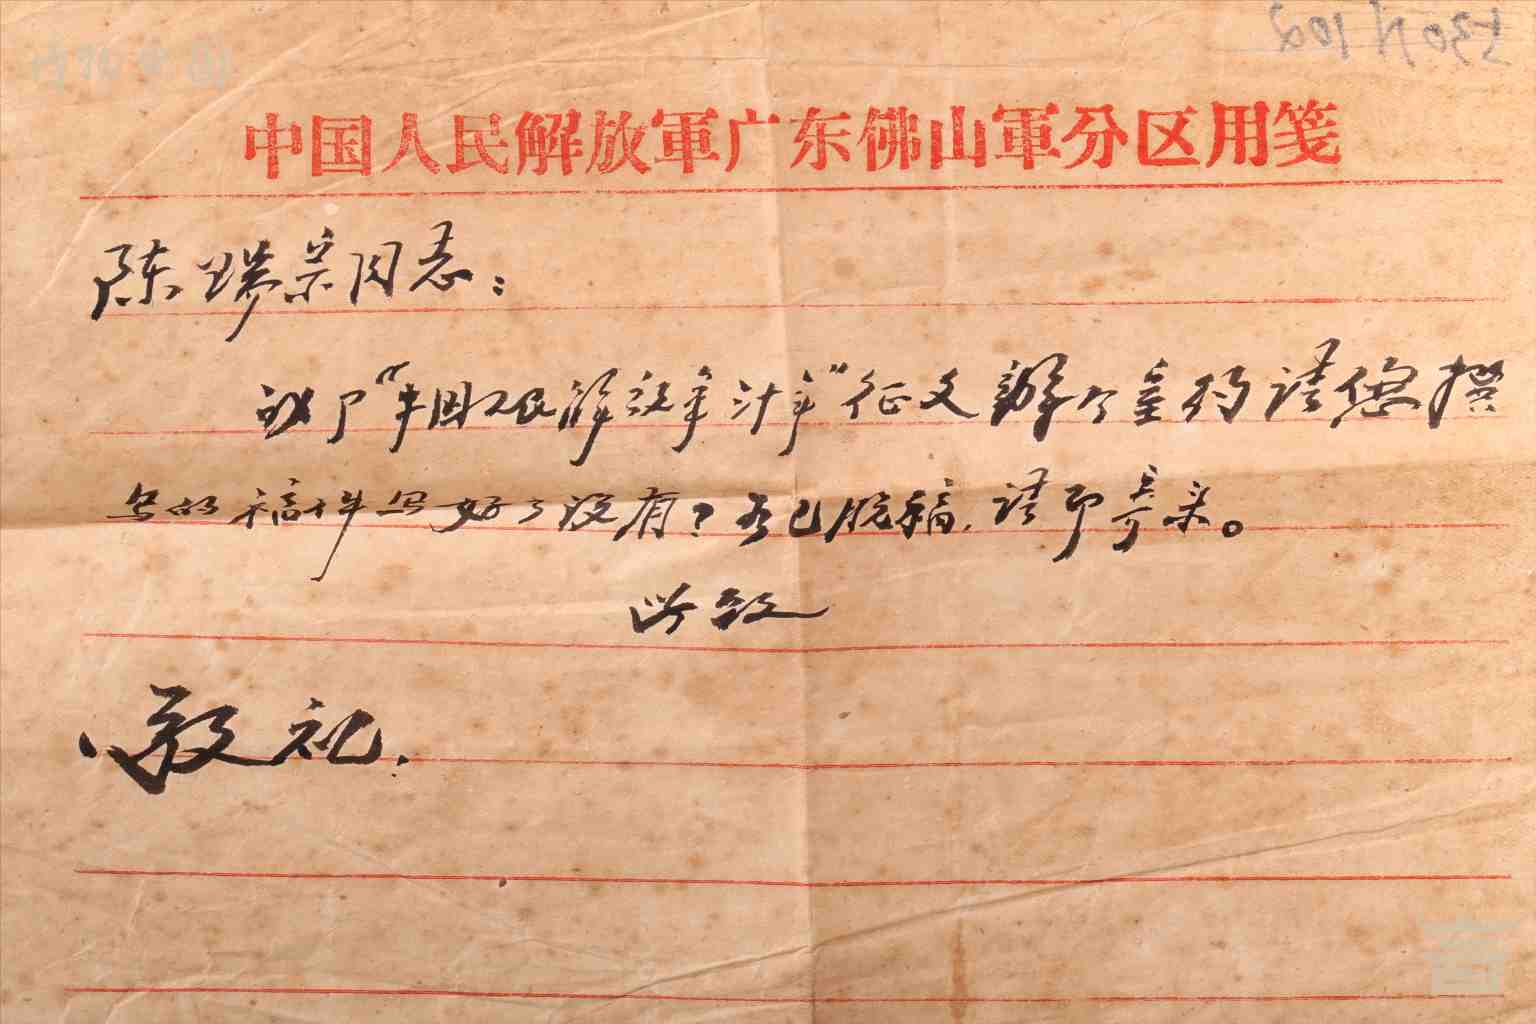 中国人民解放軍广东佛山軍分区用笺
陈瑞宗同志：
"中国人民解放军卅年"征文办公室约请您撰
写的稿件写好了没有？若已脱稿，请即寄来。
此致
敬礼．